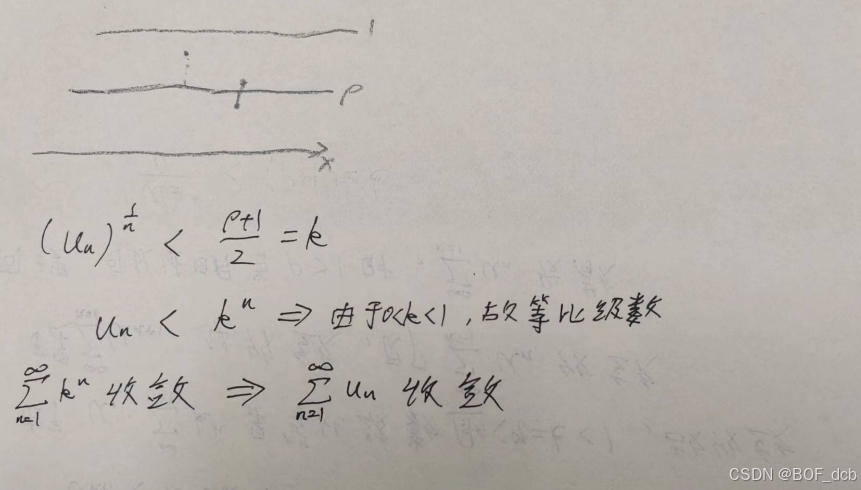 1
ρ
x
(uₙ)^{1/n} < (ρ+1)/2 = k
uₙ < kⁿ ⇒ 由于0<k<1,故等比级数
∑_{n=1}^{∞} kⁿ 收敛 ⇒ ∑_{n=1}^{∞} uₙ 收敛
CSDN @BOF_dcb